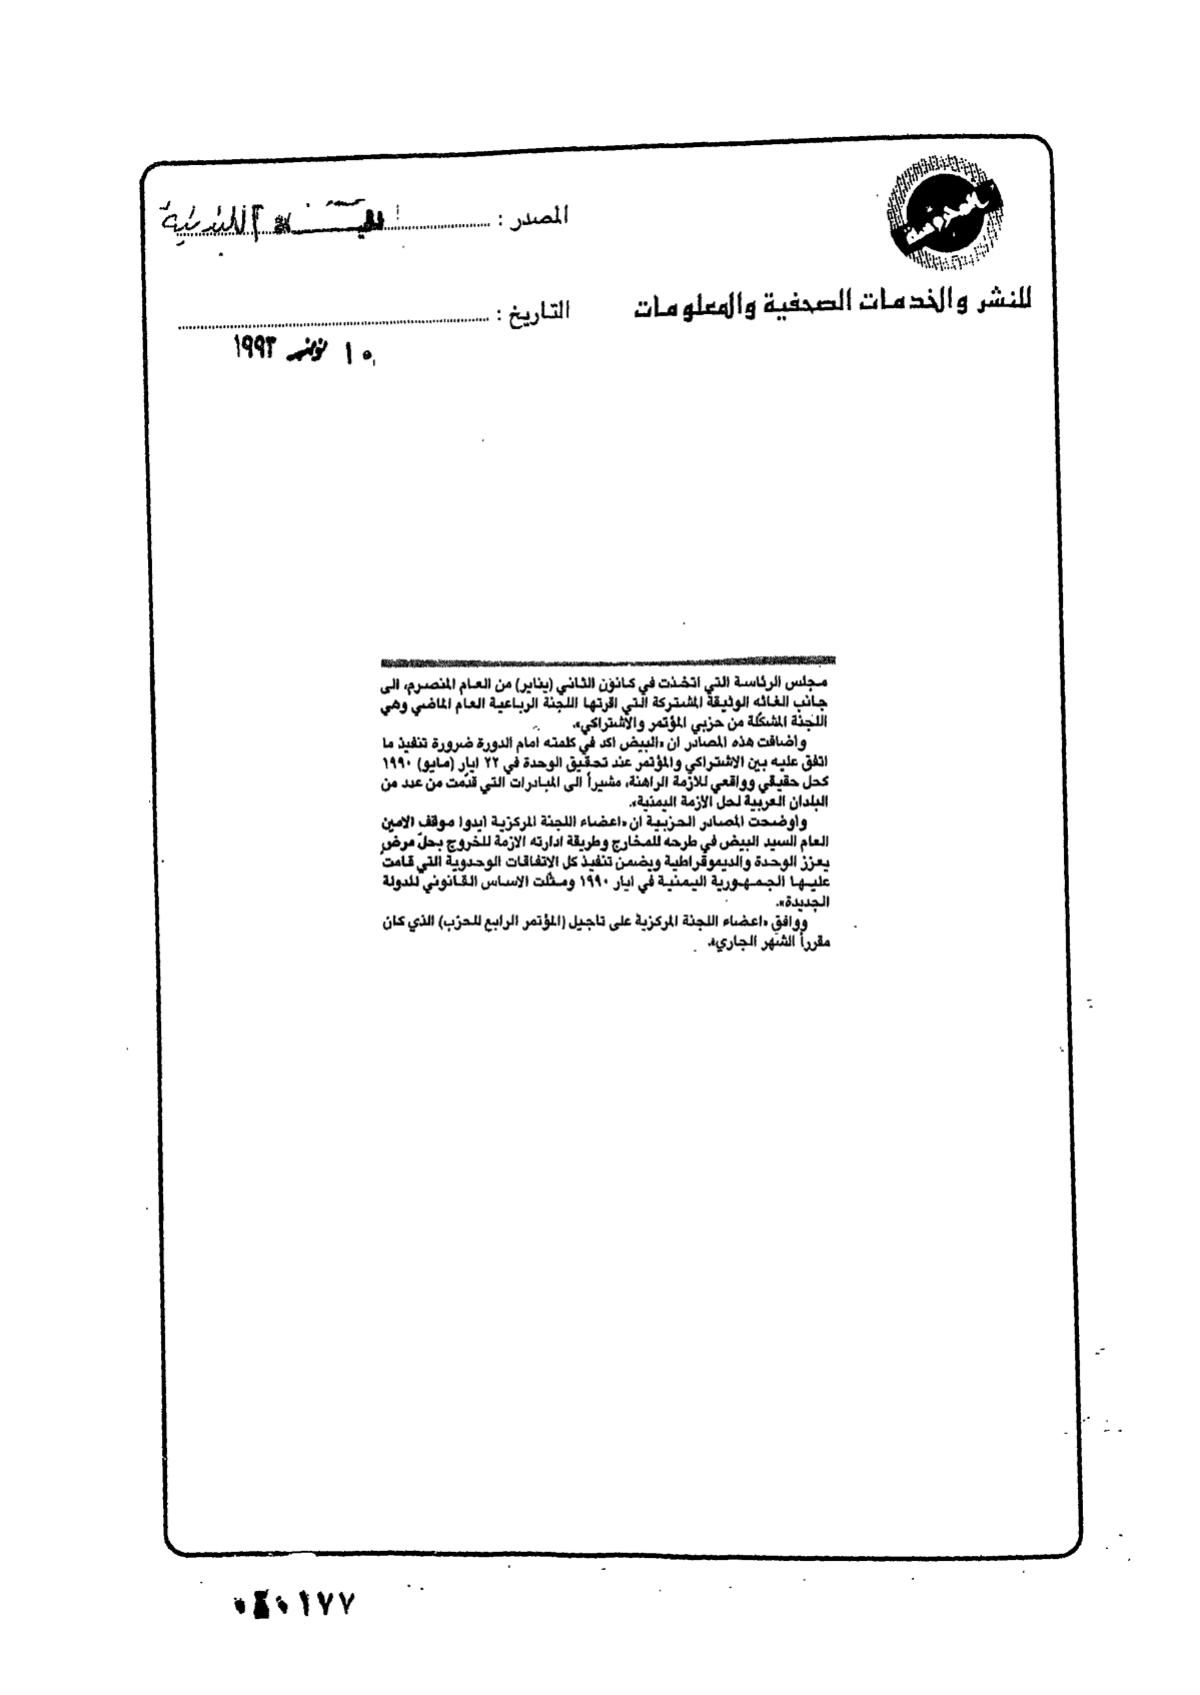 المحروسة
المصدر : الحيـــــاة اللندنية
للنشر والخدمات الصحفية والمعلومات
التاريخ :
١٥ نوفمبر ١٩٩٣
مجلس الرئاسة التي اتخذت في كانون الثاني (يناير) من العام المنصرم، الى
جانب الغائه الوثيقة المشتركة التي اقرتها اللجنة الرباعية العام الماضي وهي
اللجنة المشكّلة من حزبي المؤتمر والاشتراكي».
واضافت هذه المصادر ان «البيض اكد في كلمته امام الدورة ضرورة تنفيذ ما
اتفق عليه بين الاشتراكي والمؤتمر عند تحقيق الوحدة في ٢٢ ايار (مايو) ١٩٩٠
كحل حقيقي وواقعي للازمة الراهنة، مشيراً الى المبادرات التي قدّمت من عدد من
البلدان العربية لحل الازمة اليمنية».
واوضحت المصادر الحزبية ان «اعضاء اللجنة المركزية ايدوا موقف الامين
العام السيد البيض في طرحه للمخارج وطريقة ادارته الازمة للخروج بحلّ مرضٍ
يعزز الوحدة والديموقراطية ويضمن تنفيذ كل الاتفاقات الوحدوية التي قامت
عليها الجمهورية اليمنية في ايار ١٩٩٠ ومثّلت الاساس القانوني للدولة
الجديدة».
ووافق «اعضاء اللجنة المركزية على تاجيل (المؤتمر الرابع للحزب) الذي كان
مقرراً الشهر الجاري».
١٧٧